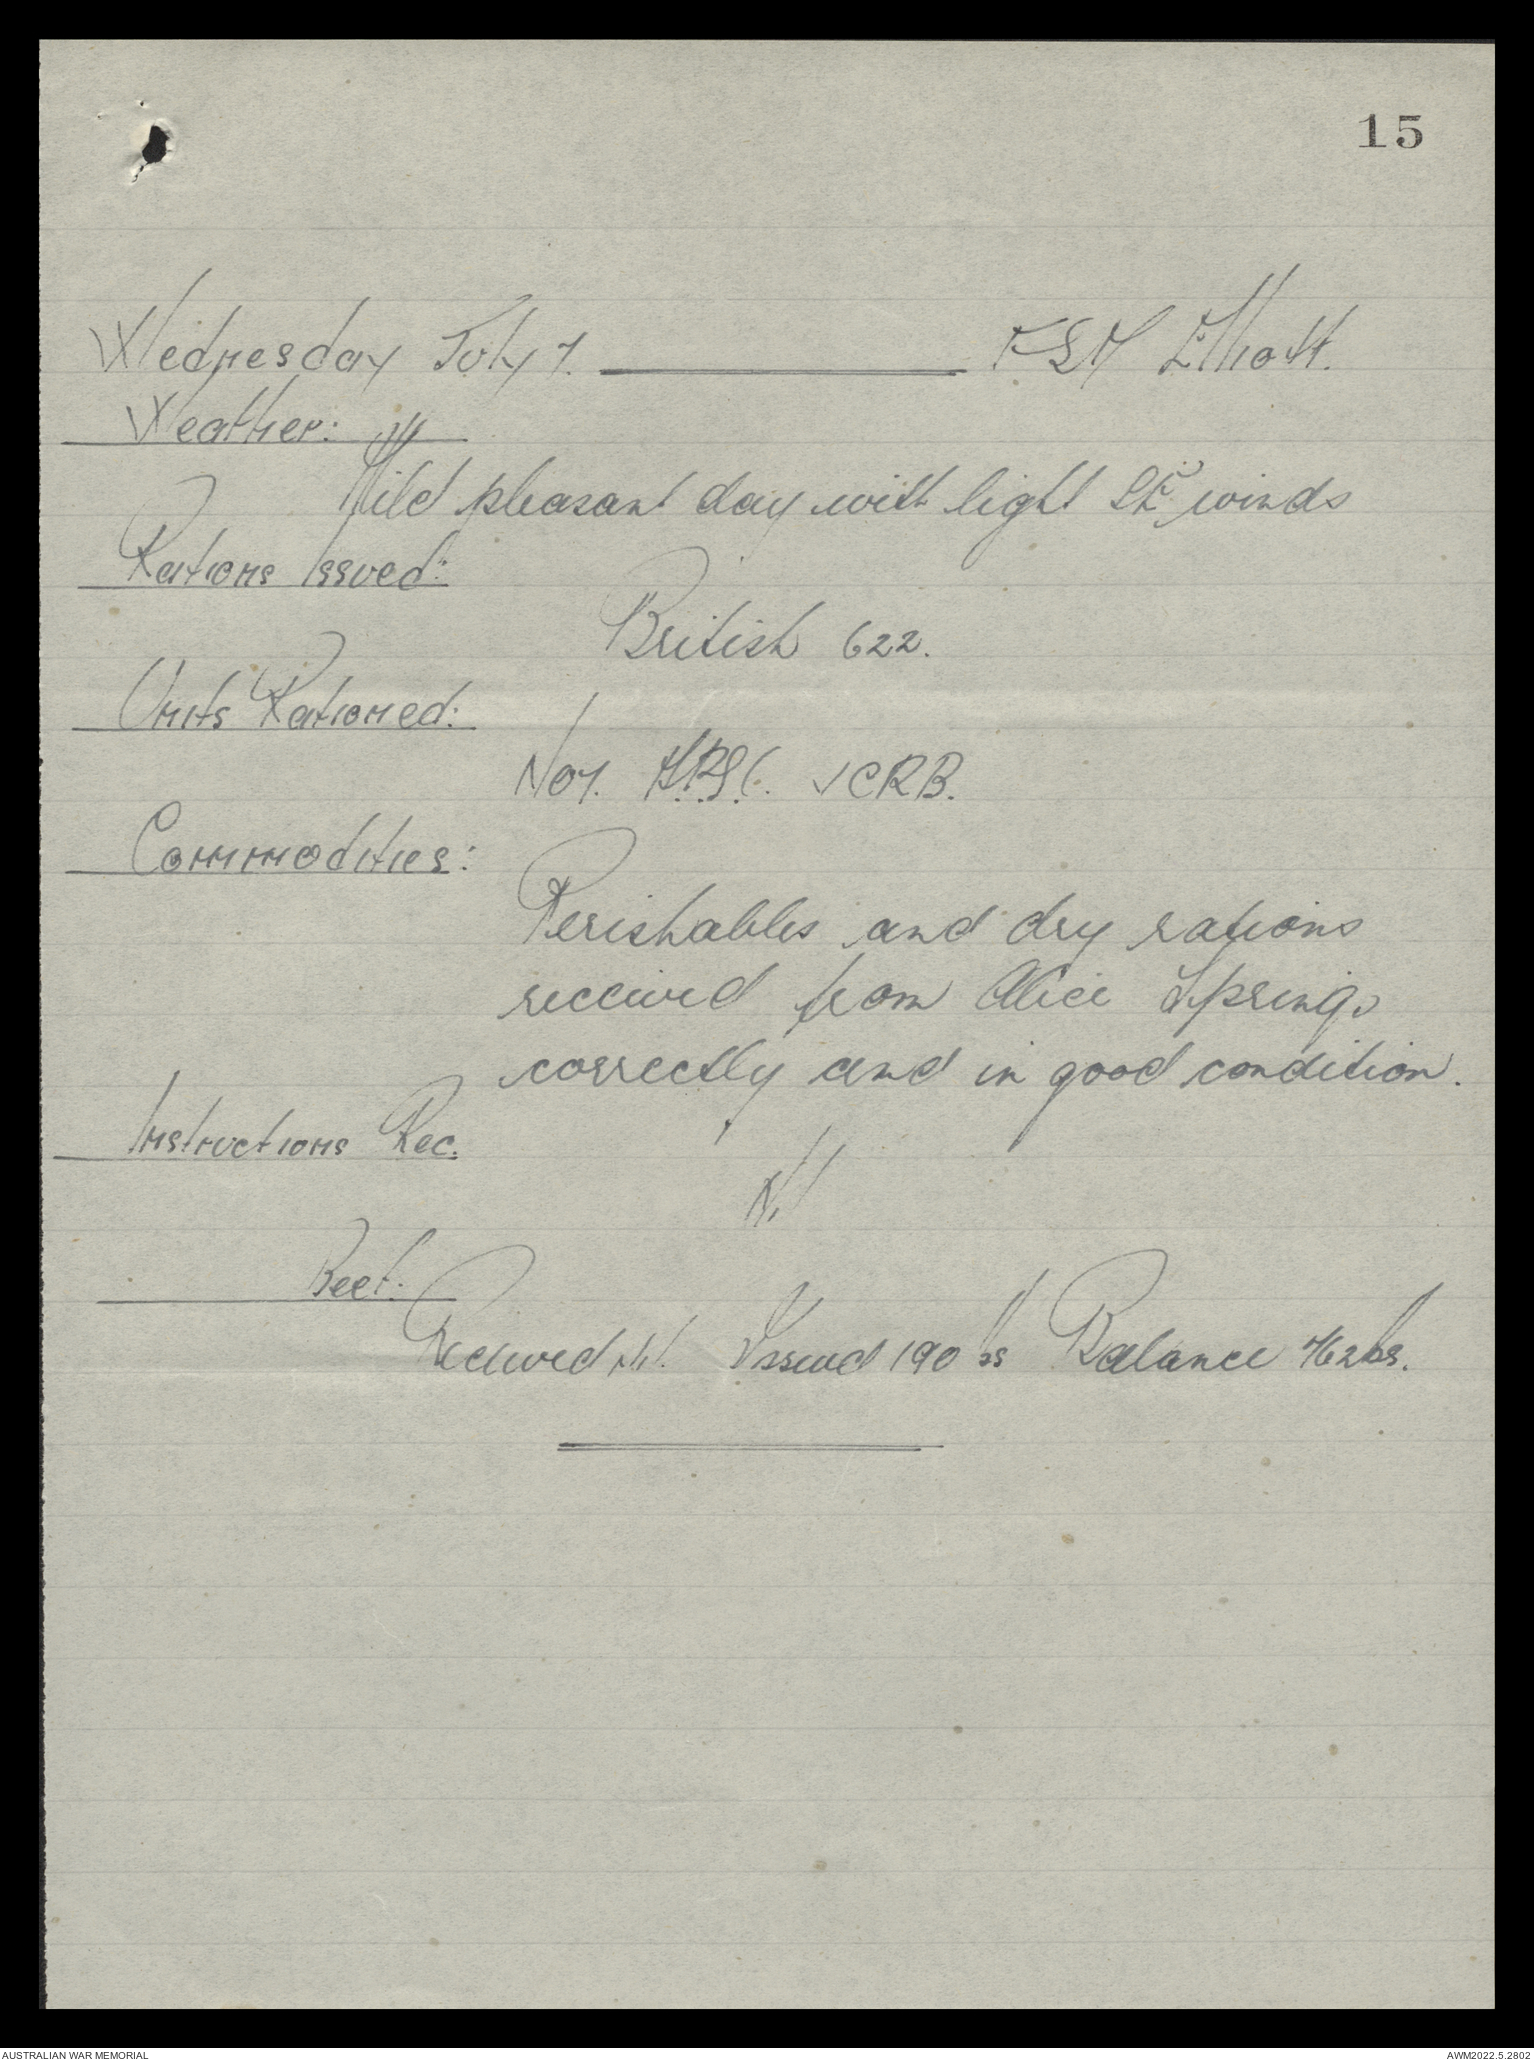 15
Wednesday July 7. F S M Elliott.
Weather:
Mild pleasant day with light SE winds
Rations Issued:
British 622.
Units Rationed:
No 7. CRB.
Commodities:
Perishables and dry rations
received from Alice Springs
correctly and in good condition.
Instructions Rec.
Nil
Beef:
Received Nil. Issued 190 lbs Balance 762 lbs.
AUSTRALIAN WAR MEMORIAL
AWM2022.5.2802